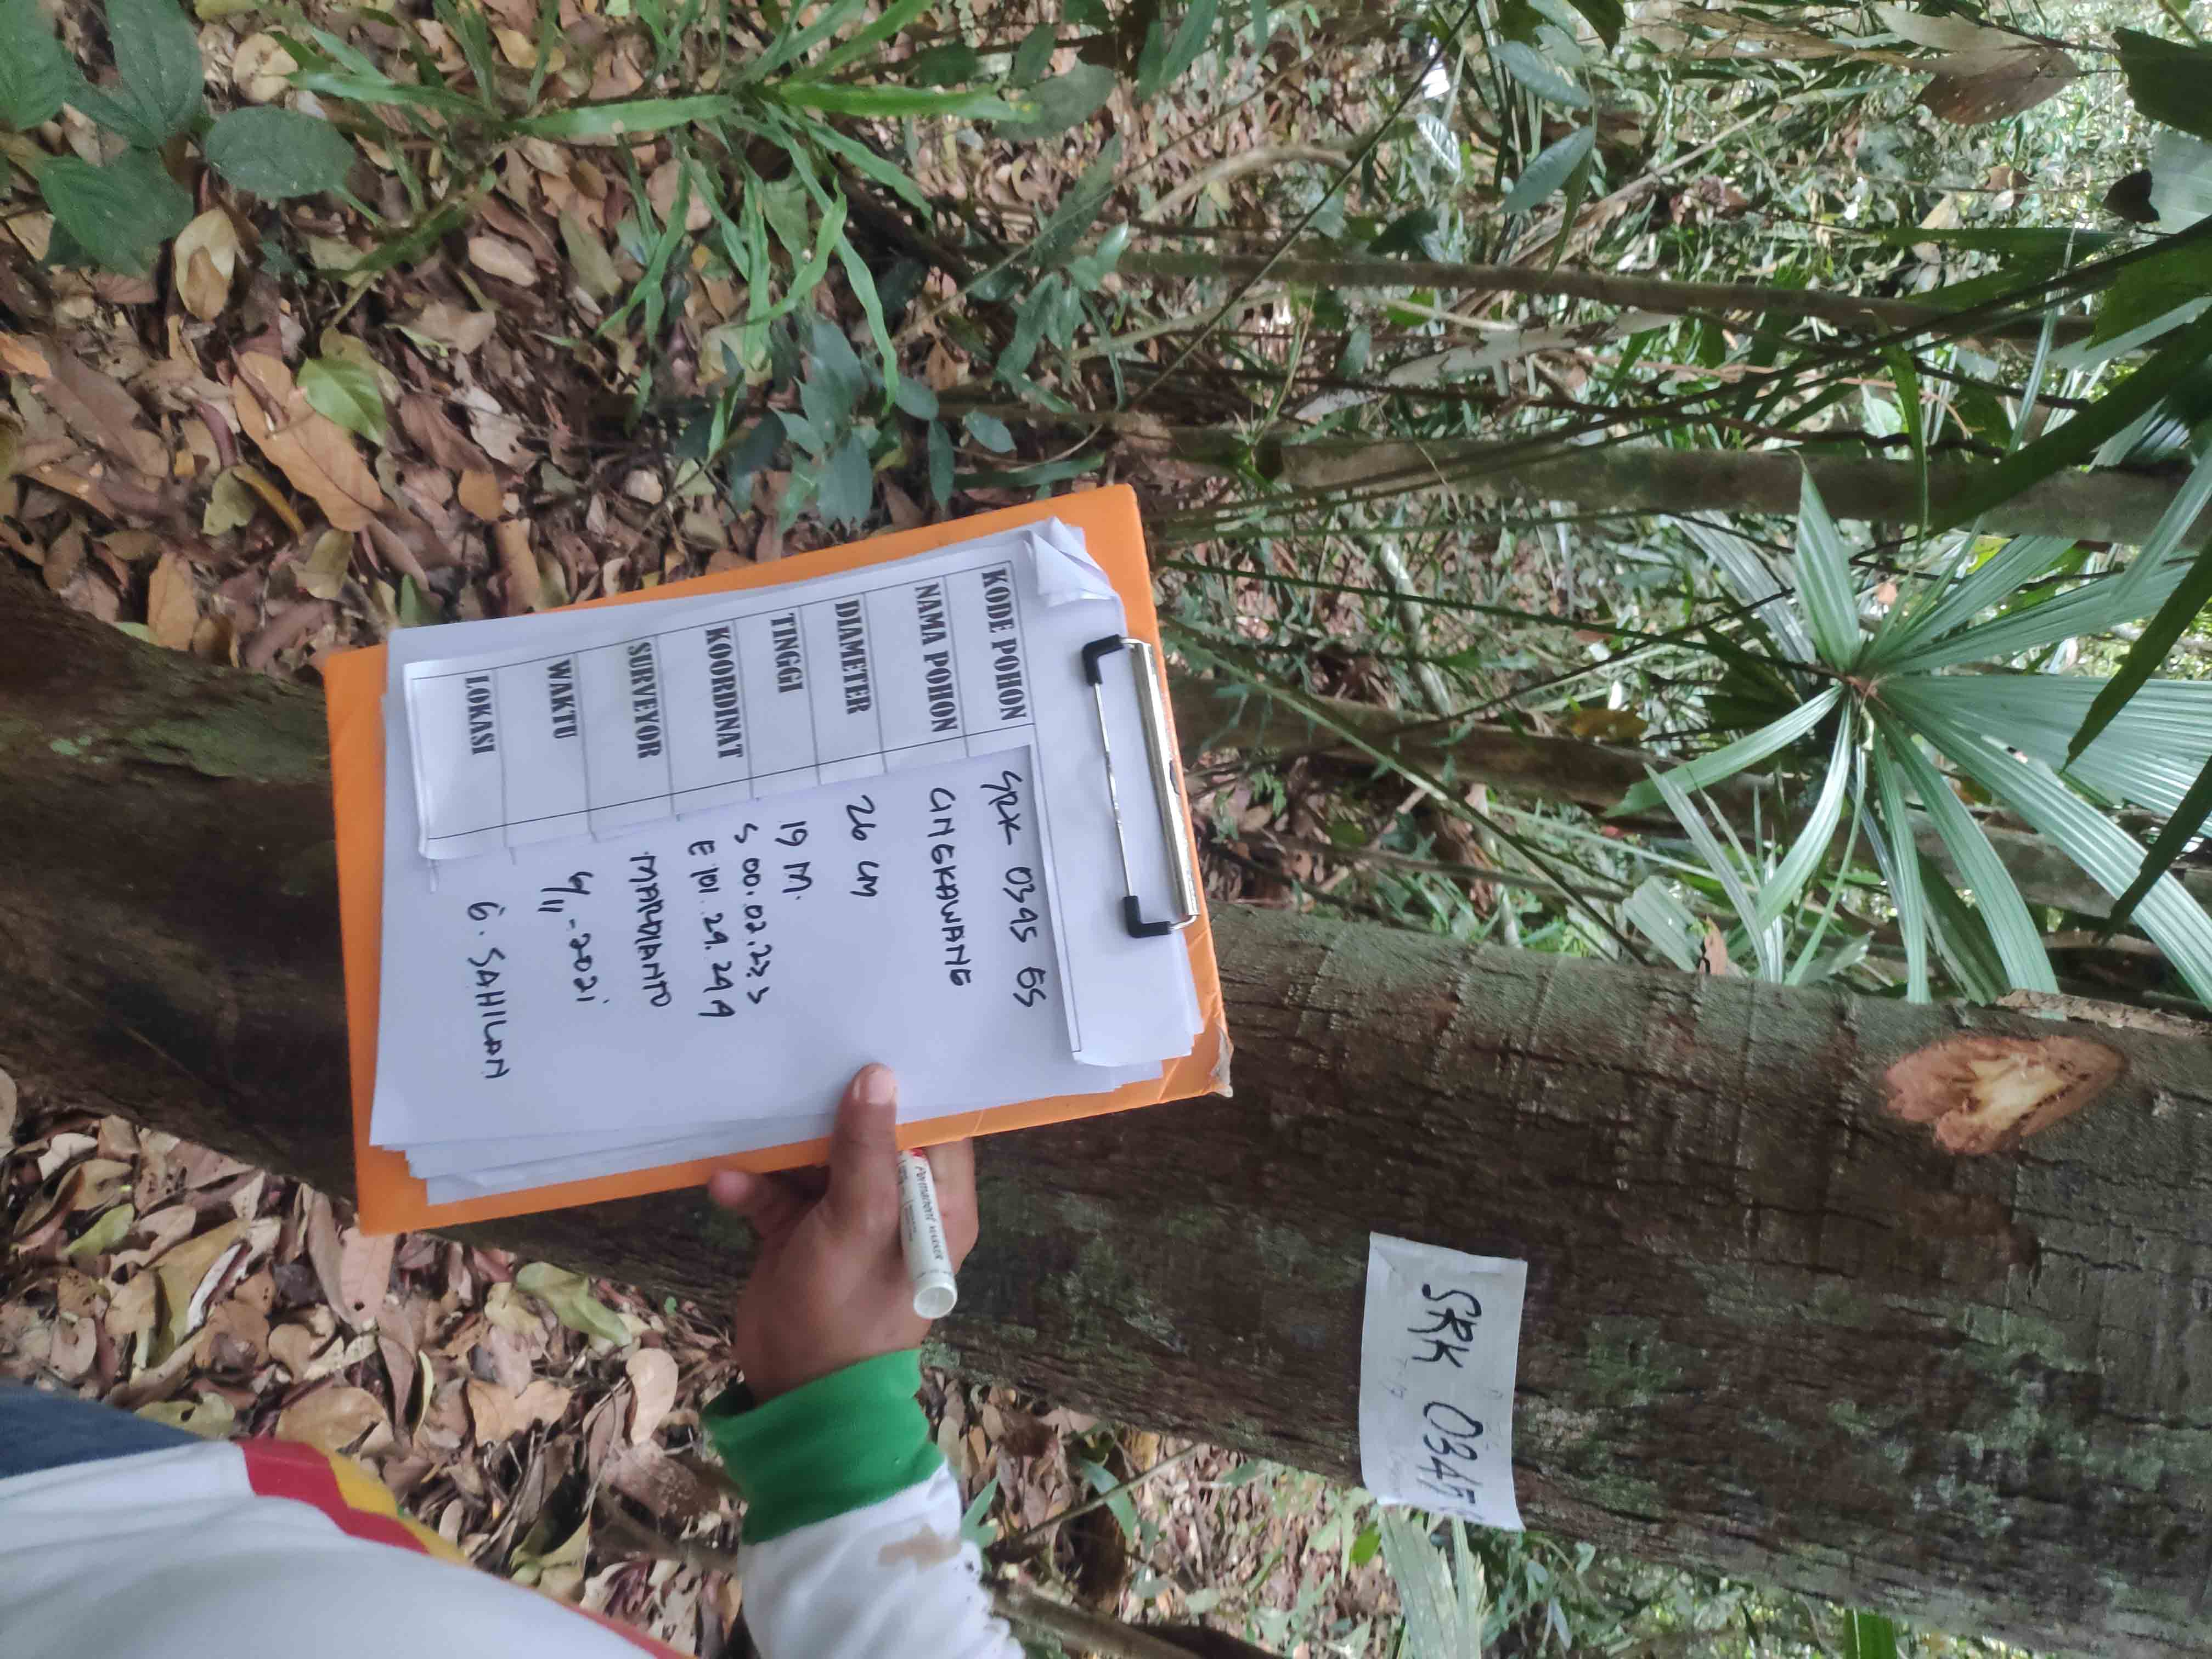 SRK 0345
KODE POHON SRK 0345 GS
NAMA POHON CINGKAWANG
DIAMETER 26 CM
TINGGI 19 M.
KOORDINAT S 00.02.23.5
E 101.29.29 A
SURVEYOR MARDIANTO
WAKTU 6/11-2021
LOKASI G. SAHILAN
Permanent MARKER